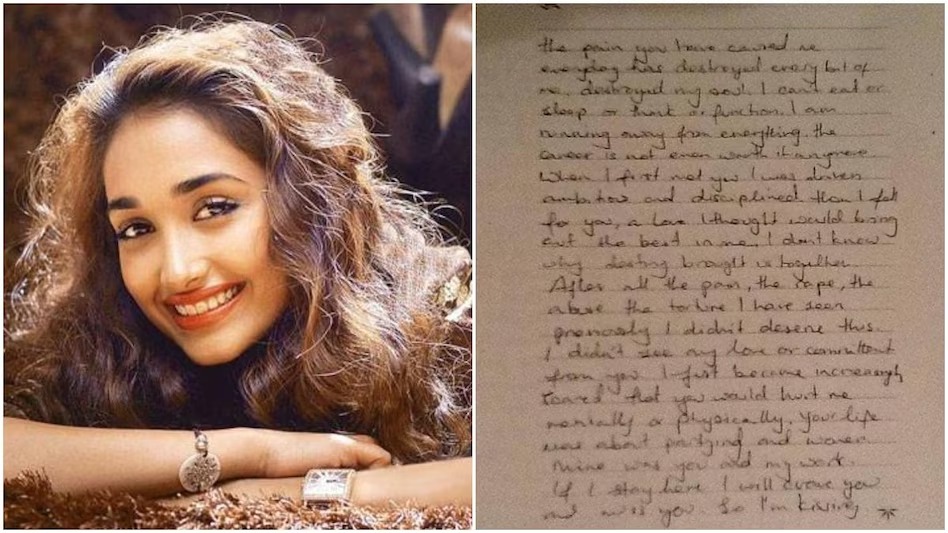 the pain you have caused me
everyday has destroyed every bit of
me, destroyed my soul. I can't eat or
sleep or think or function. I am
running away from everything. the
career is not even worth it anymore
When I first met you I was driven
ambitious and disciplined. Then I fell
for you, a love I thought would bring
out the best in me. I don't know
why destiny brought us together.
After all the pain, the rape, the
abuse the torture I have seen
previously I didn't deserve this.
I didn't see any love or commitment
from you. I just became increasingly
scared that you would hurt me
mentally or physically. Your life
was about partying and women
mine was you and my work.
If I stay here I will crave you
and miss you. So I'm kissing